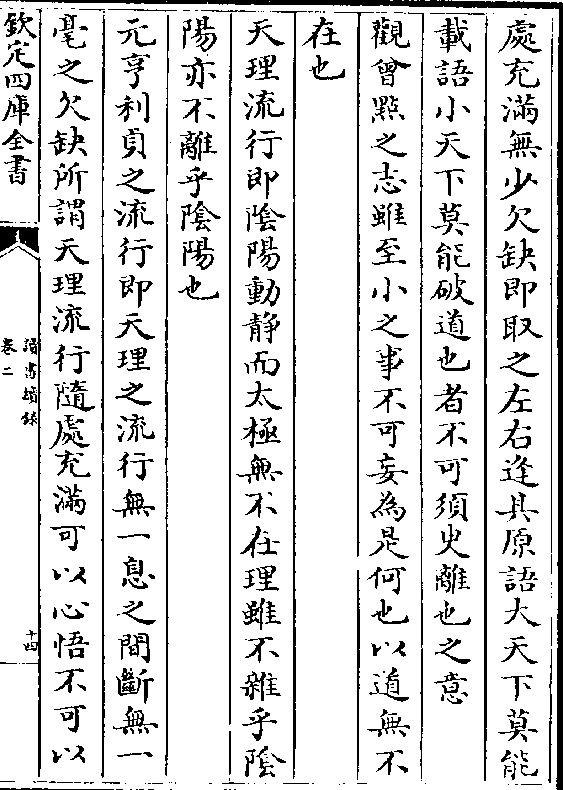 處充滿無少欠缺即取之左右逢其原語大天下莫能
載語小天下莫能破道也者不可須臾離也之意
觀曾㸃之志雖至小之事不可妄為是何也以道無不
在也
天理流行即陰陽動靜而太極無不在理雖不雜乎陰
陽亦不離乎陰陽也
元亨利貞之流行即天理之流行無一息之間斷無一
毫之欠缺所謂天理流行隨處充滿可以心悟不可以
欽定四庫全書
讀書續録
卷二
十四